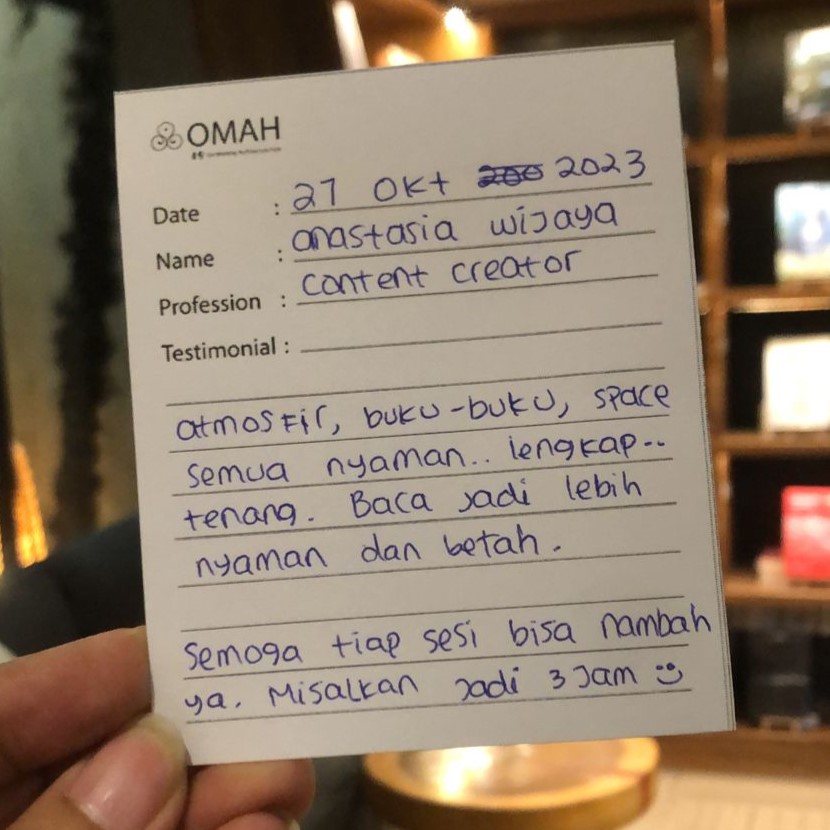 OMAH
Date : 27 OKt 2023
Name : anastasia wijaya
Profession : content creator
Testimonial :
atmosfir, buku-buku, space
semua nyaman.. lengkap..
tenang. Baca jadi lebih
nyaman dan betah.
semoga tiap sesi bisa nambah
ya. Misalkan jadi 3 Jam